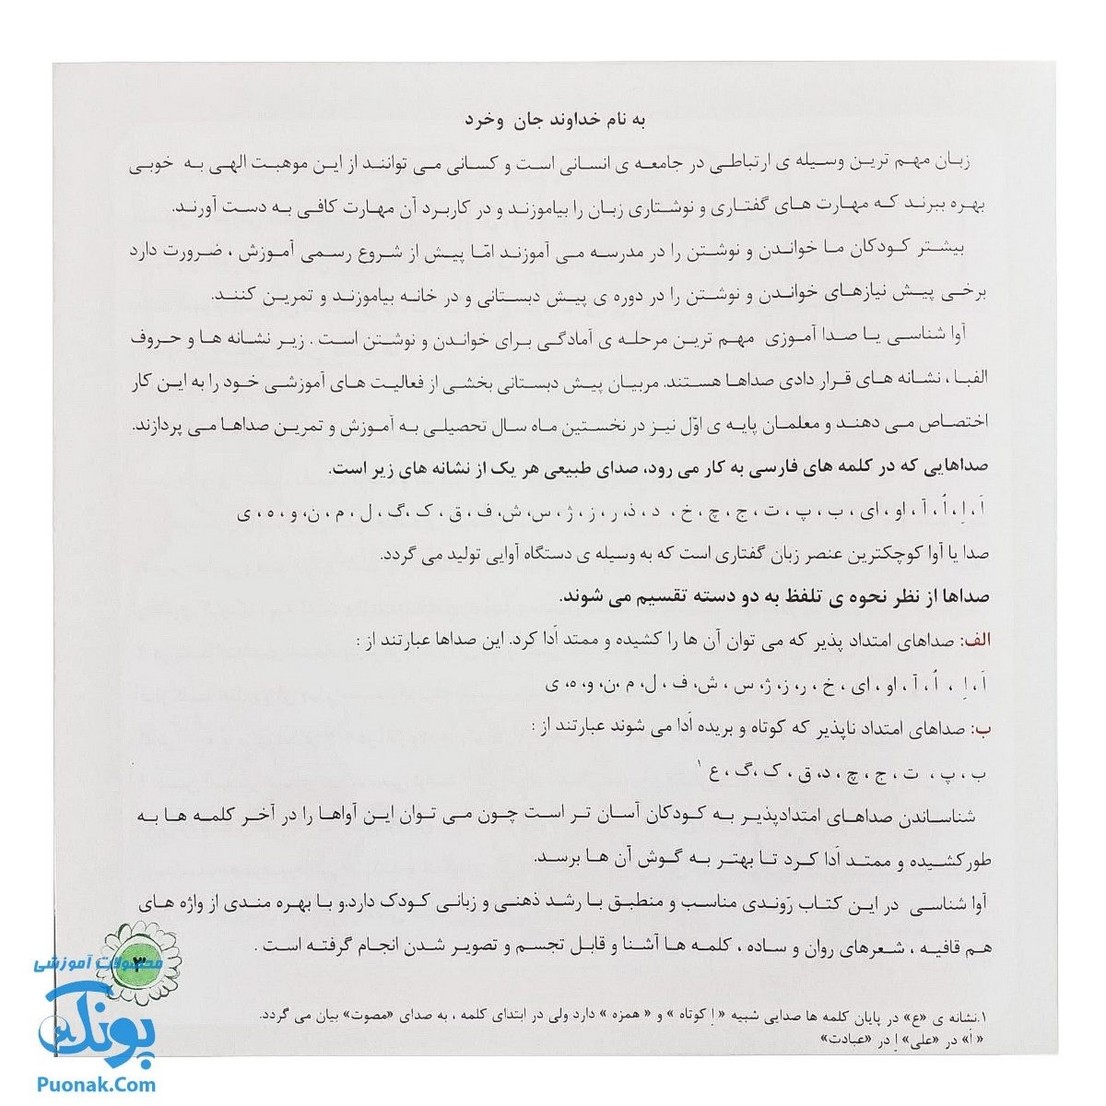 به نام خداوند جان وخرد
زبان مهم ترین وسیله ی ارتباطی در جامعه ی انسانی است و کسانی می توانند از این موهبت الهی به خوبی
بهره ببرند که مهارت های گفتاری و نوشتاری زبان را بیاموزند و در کاربرد آن مهارت کافی به دست آورند.
بیشتر کودکان ما خواندن و نوشتن را در مدرسه می آموزند امّا پیش از شروع رسمی آموزش ، ضرورت دارد
برخی پیش نیازهای خواندن و نوشتن را در دوره ی پیش دبستانی و در خانه بیاموزند و تمرین کنند.
آوا شناسی یا صدا آموزی مهم ترین مرحله ی آمادگی برای خواندن و نوشتن است . زیر نشانه ها و حروف
الفبا ، نشانه های قرار دادی صداها هستند. مربیان پیش دبستانی بخشی از فعالیت های آموزشی خود را به این کار
اختصاص می دهند و معلمان پایه ی اوّل نیز در نخستین ماه سال تحصیلی به آموزش و تمرین صداها می پردازند.
صداهایی که در کلمه های فارسی به کار می رود، صدای طبیعی هر یک از نشانه های زیر است.
اَ ، اِ ، اُ ، آ ، او ، ای ، ب ، پ ، ت ، ج ، چ ، خ ، د ، ذ، ر ، ز ، ژ ، س، ش، ف ، ق ، ک ،گ ، ل ، م ، ن، و ، ه ، ی
صدا یا آوا کوچکترین عنصر زبان گفتاری است که به وسیله ی دستگاه آوایی تولید می گردد.
صداها از نظر نحوه ی تلفظ به دو دسته تقسیم می شوند.
الف: صداهای امتداد پذیر که می توان آن ها را کشیده و ممتد اَدا کرد. این صداها عبارتند از :
اَ ، اِ ، اُ ، آ ، او ، ای ، خ ، ر، ز، ژ، س ، ش، ف ، ل، م ،ن، و، ه، ی
ب: صداهای امتداد ناپذیر که کوتاه و بریده اَدا می شوند عبارتند از :
ب ، پ ، ت ، ج ، چ ، د، ق ، ک ،گ ، ع ۱
شناساندن صداهای امتدادپذیر به کودکان آسان تر است چون می توان این آواها را در آخر کلمه ها به
طورکشیده و ممتد اَدا کرد تا بهتر به گوش آن ها برسد.
آوا شناسی در این کتاب رَوندی مناسب و منطبق با رشد ذهنی و زبانی کودک دارد.و با بهره مندی از واژه های
هم قافیه ، شعرهای روان و ساده ، کلمه ها آشنا و قابل تجسم و تصویر شدن انجام گرفته است .
۳
۱.نشانه ی «ع» در پایان کلمه ها صدایی شبیه « اِ کوتاه » و « همزه » دارد ولی در ابتدای کلمه ، به صدای «مصوت» بیان می گردد.
« اَ» در «علی» اِ در «عبادت»
محصولات آموزشی
پونک
Puonak.Com